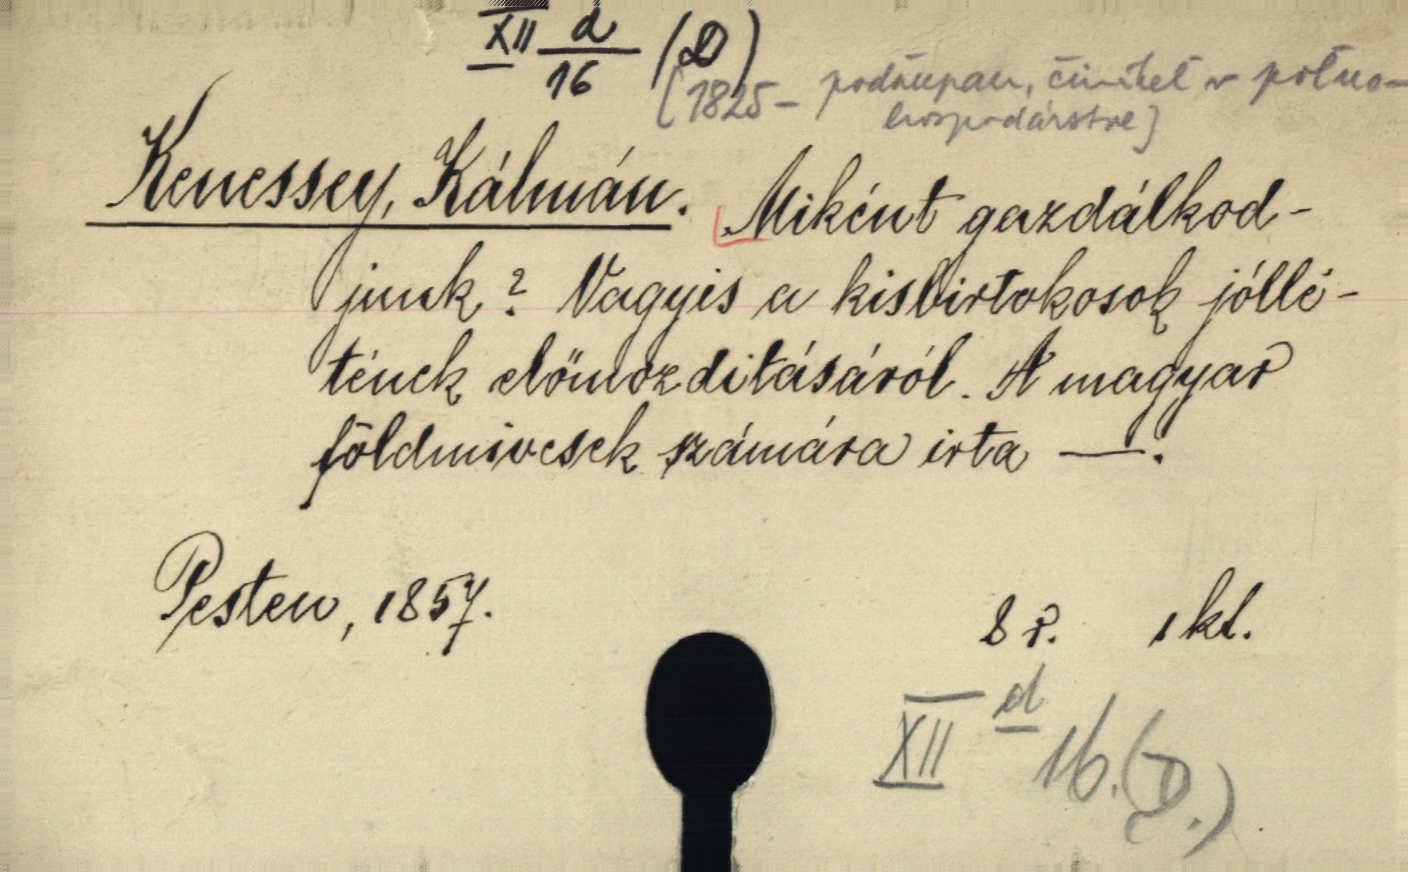 XII d/16 (D)
[1825- podžupan, činitel v poľno-
hospodárstve]
Kenessey, Kálmán. Miként gazdálkod-
junk? Vagyis a kisbirtokosok jóllé-
tének előmozditásáról. A magyar
földmivesek számára irta —.
Pesten, 1857.
8 r. 1 kt.
XII d 16. (D.)